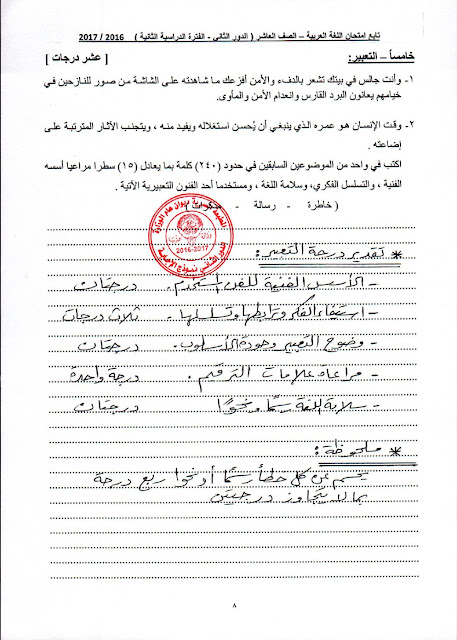 تابع إمتحان اللغة العربية – الصف العاشر ( الدور الثاني - الفترة الدراسية الثانية ) 2016 / 2017
خامساً – التعبير: [ عشر درجات ]
١- وأنت جالس في بيتك تشعر بالدفء والأمن أفزعك ما شاهدته على الشاشة من صور للنازحين في
خيامهم يعانون البرد القارس وانعدام الأمن والمأوى.
٢- وقت الإنسان هو عمره الذي ينبغي أن يُحسن استغلاله ويفيد منه ، ويتجنب الآثار المترتبة على
إضاعته .
اكتب في واحد من الموضوعين السابقين في حدود (٢٤٠) كلمة بما يعادل (١٥) سطرا مراعيا أسسه
الفنية ، والتسلسل الفكري، وسلامة اللغة ، ومستخدما أحد الفنون التعبيرية الآتية .
( خاطرة - رسالة - مذكرات )
2016-2017
* تقدير درجة التعبير :
- الأسس الفنية للفن المستخدم . درجتان
- استيفاء الفكر وترابطها وتسلسلها . ثلاث درجات
- وضوح التعبير وجودة الأسلوب . درجتان
- مراعاة علامات الترقيم . درجة واحدة
- سلامة اللغة رسمًا ونحوًا درجتان
* ملحوظة :
يحسم عن كل خطأ رسمًا أو نحوا ربع درجة
بما لا يتجاوز درجتين
٨